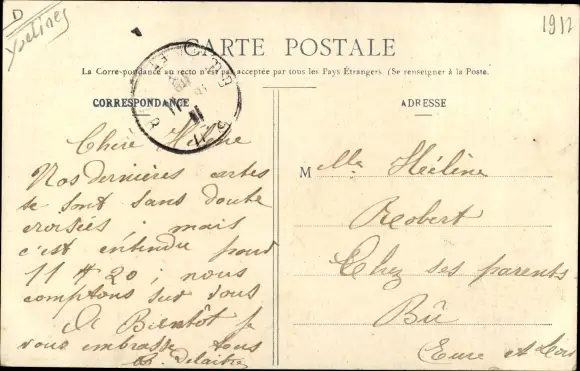 D
Yvelines
1912
CARTE POSTALE
La Correspondance au recto n'est pas acceptée par tous les Pays Étrangers. (Se renseigner à la Poste.
CORRESPONDANCE
Chère Hélène
Nos dernières cartes
se sont sans doute
croisées ; mais
c'est entendu pour
11 H 20 ; nous
comptons sur vous
A Bientôt je
vous embrasse tous
ADRESSE
Melle Hélène
Robert
Chez ses parents
Bû
Eure et Loir